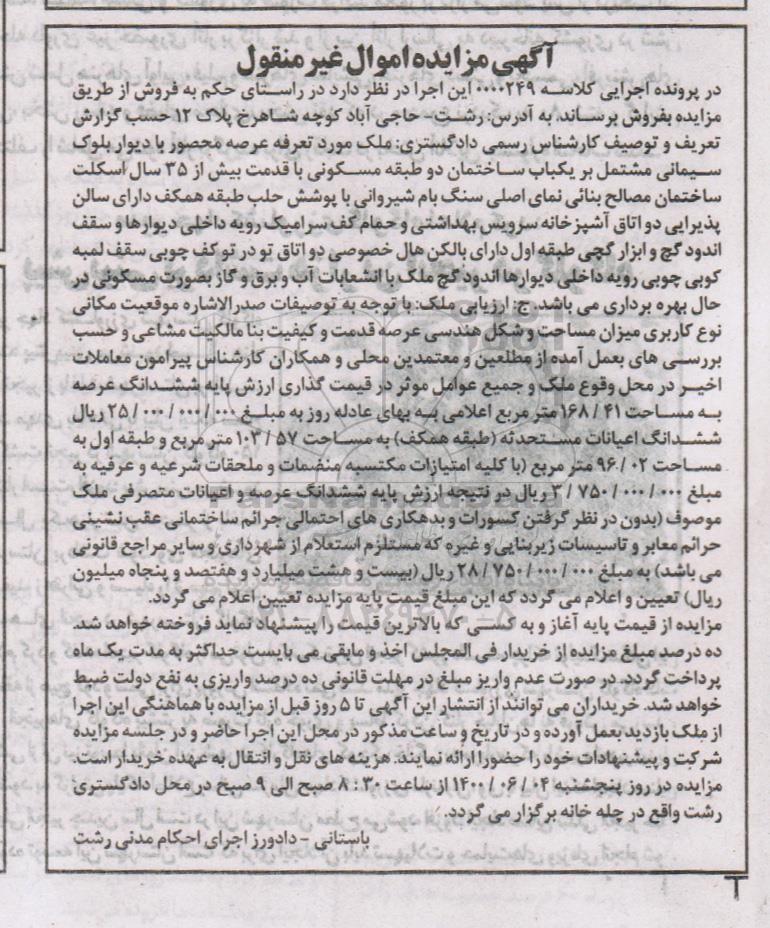 آگهی مزایده اموال غیر منقول
در پرونده اجرایی کلاسه ۰۰۰۰۲۴۹ این اجرا در نظر دارد در راستای حکم به فروش از طریق
مزایده بفروش برساند. به آدرس: رشت - حاجی آباد کوچه شاهرخ پلاک ۱۲ حسب گزارش
تعریف و توصیف کارشناس رسمی دادگستری: ملک مورد تعرفه عرصه محصور با دیوار بلوک
سیمانی مشتمل بر یکباب ساختمان دو طبقه مسکونی با قدمت بیش از ۳۵ سال اسکلت
ساختمان مصالح بنائی نمای اصلی سنگ بام شیروانی با پوشش حلب طبقه همکف دارای سالن
پذیرایی دو اتاق آشپزخانه سرویس بهداشتی و حمام کف سرامیک رویه داخلی دیوارها و سقف
اندود گچ و ابزار گچی طبقه اول دارای بالکن هال خصوصی دو اتاق تو در تو کف چوبی سقف لمبه
کوبی چوبی رویه داخلی دیوارها اندود گچ ملک با انشعابات آب و برق و گاز بصورت مسکونی در
حال بهره برداری می باشد. ج: ارزیابی ملک: با توجه به توصیفات صدرالاشاره موقعیت مکانی
نوع کاربری میزان مساحت و شکل هندسی عرصه قدمت و کیفیت بنا مالکیت مشاعی و حسب
بررسی های بعمل آمده از مطلعین و معتمدین محلی و همکاران کارشناس پیرامون معاملات
اخیر در محل وقوع ملک و جمیع عوامل موثر در قیمت گذاری ارزش پایه ششدانگ عرصه
به مساحت ۱۶۸/۴۱ متر مربع اعلامی به بهای عادله روز به مبلغ ۲۵/۰۰۰/۰۰۰/۰۰۰ ریال
ششدانگ اعیانات مستحدثه (طبقه همکف) به مساحت ۱۰۳/۵۷ متر مربع و طبقه اول به
مساحت ۹۶/۰۲ متر مربع (با کلیه امتیازات مکتسبه منضمات و ملحقات شرعیه و عرفیه به
مبلغ ۳/۷۵۰/۰۰۰/۰۰۰ ریال در نتیجه ارزش پایه ششدانگ عرصه و اعیانات متصرفی ملک
موصوف (بدون در نظر گرفتن کسورات و بدهکاری های احتمالی جرائم ساختمانی عقب نشینی
حرائم معابر و تاسیسات زیربنایی و غیره که مستلزم استعلام از شهرداری و سایر مراجع قانونی
می باشد) به مبلغ ۲۸/۷۵۰/۰۰۰/۰۰۰ ریال (بیست و هشت میلیارد و هفتصد و پنجاه میلیون
ریال) تعیین و اعلام می گردد که این مبلغ قیمت پایه مزایده تعیین اعلام می گردد.
مزایده از قیمت پایه آغاز و به کسی که بالاترین قیمت را پیشنهاد نماید فروخته خواهد شد.
ده درصد مبلغ مزایده از خریدار فی المجلس اخذ و مابقی می بایست حداکثر به مدت یک ماه
پرداخت گردد. در صورت عدم واریز مبلغ در مهلت قانونی ده درصد واریزی به نفع دولت ضبط
خواهد شد. خریداران می توانند از انتشار این آگهی تا ۵ روز قبل از مزایده با هماهنگی این اجرا
از ملک بازدید بعمل آورده و در تاریخ و ساعت مذکور در محل این اجرا حاضر و در جلسه مزایده
شرکت و پیشنهادات خود را حضورا ارائه نمایند. هزینه های نقل و انتقال به عهده خریدار است.
مزایده در روز پنجشنبه ۱۴۰۰/۰۶/۰۴ از ساعت ۸:۳۰ صبح الی ۹ صبح در محل دادگستری
رشت واقع در چله خانه برگزار می گردد.
باستانی - دادورز اجرای احکام مدنی رشت